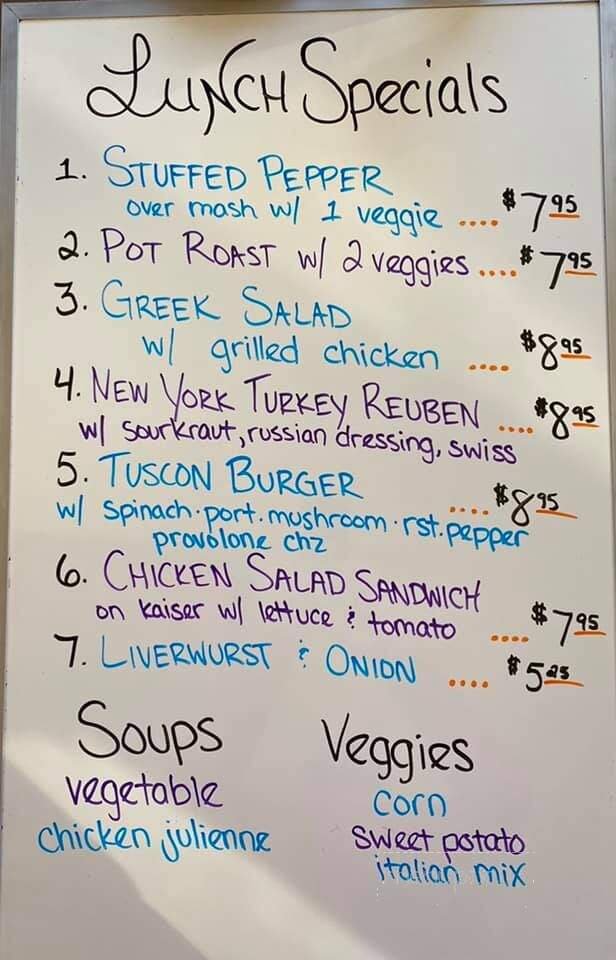 Lunch Specials
1. Stuffed Pepper
over mash w/ 1 veggie .... $7.95
2. Pot Roast w/ 2 veggies .... $7.95
3. Greek Salad
w/ grilled chicken .... $8.95
4. New York Turkey Reuben .... $8.95
w/ sourkraut, russian dressing, swiss
5. Tuscon Burger .... $8.95
w/ spinach · port. mushroom · rst. pepper
provolone chz
6. Chicken Salad Sandwich
on kaiser w/ lettuce & tomato .... $7.95
7. Liverwurst & Onion .... $5.25
Soups
vegetable
chicken julienne
Veggies
corn
sweet potato
italian mix